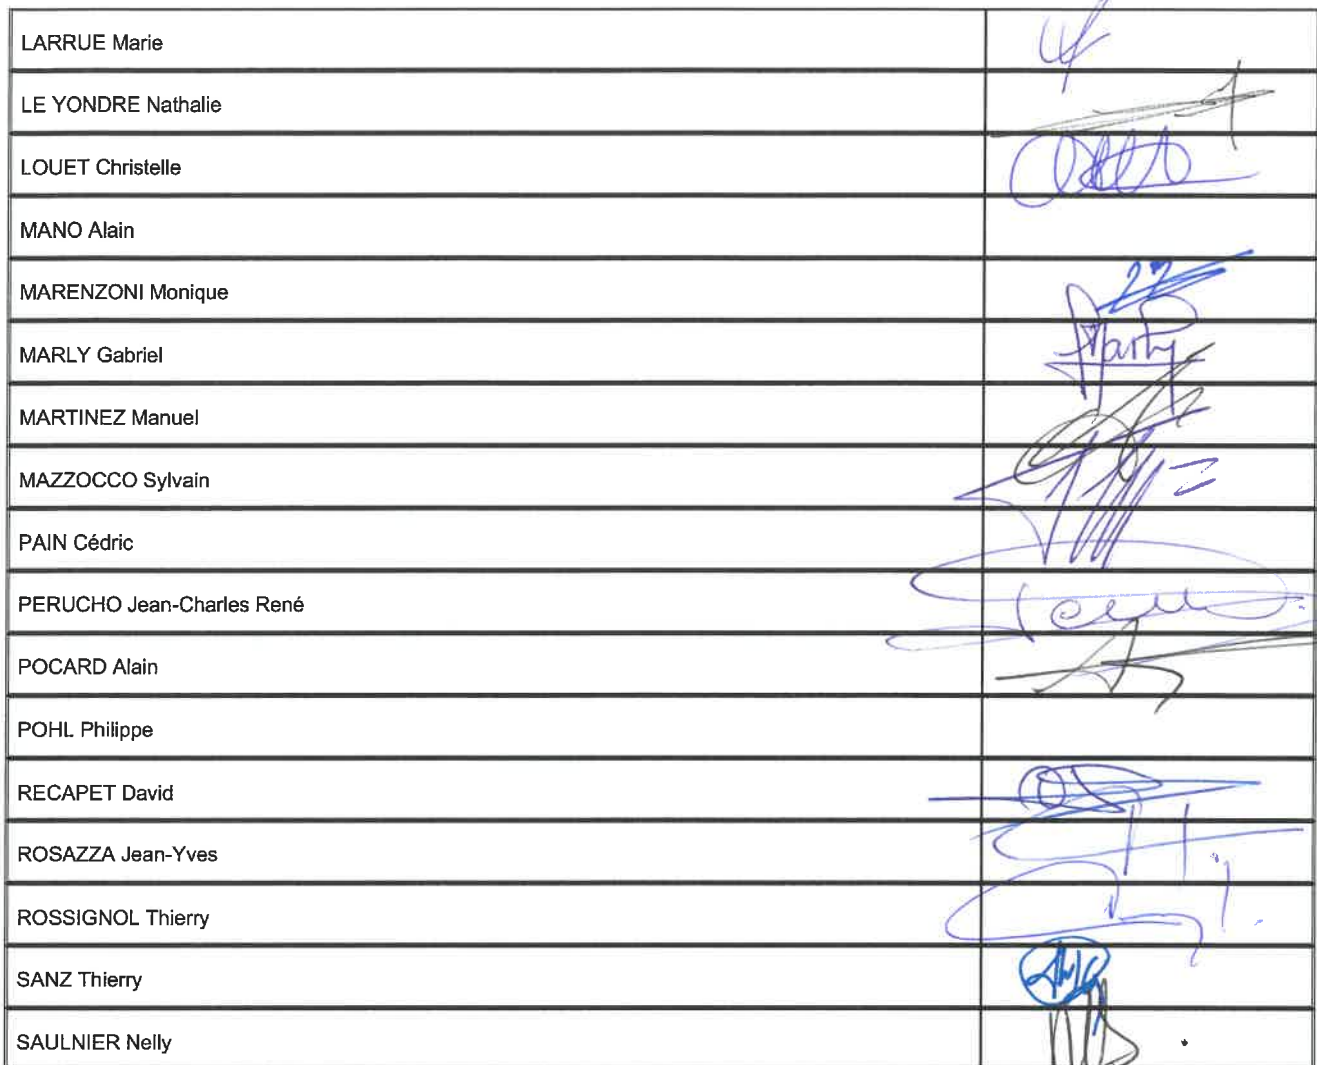 LARRUE Marie
LE YONDRE Nathalie
LOUET Christelle
MANO Alain
MARENZONI Monique
MARLY Gabriel
Marly
MARTINEZ Manuel
MAZZOCCO Sylvain
PAIN Cédric
PERUCHO Jean-Charles René
POCARD Alain
POHL Philippe
RECAPET David
ROSAZZA Jean-Yves
ROSSIGNOL Thierry
SANZ Thierry
SAULNIER Nelly